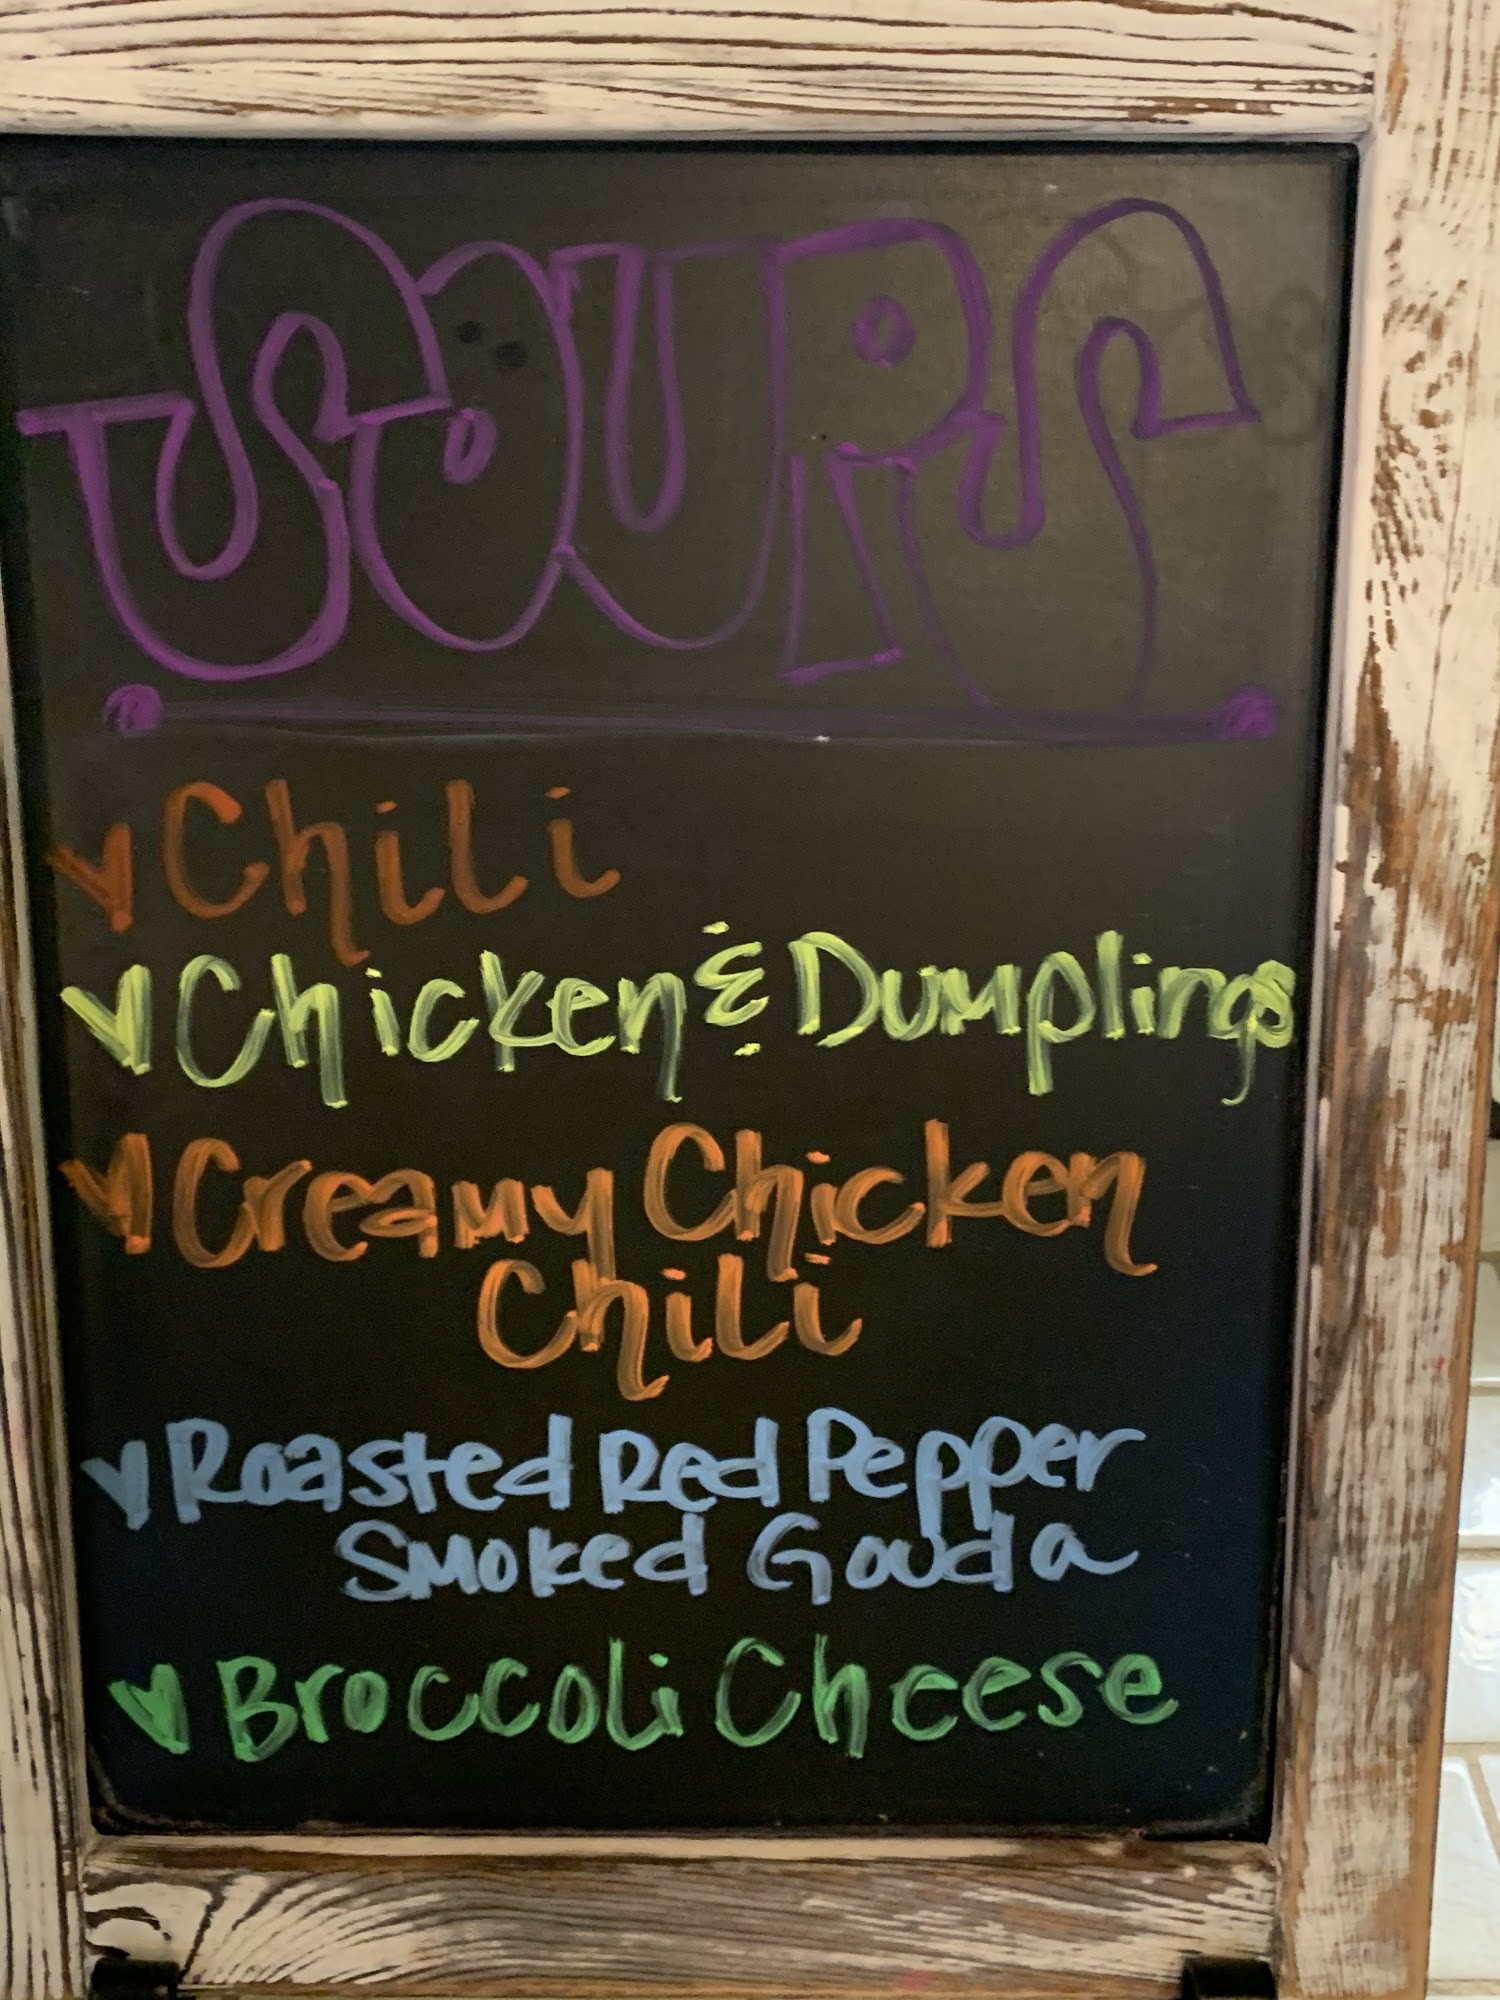 SOUPS
Chili
Chicken & Dumplings
Creamy Chicken
Chili
Roasted Red Pepper
Smoked Gouda
Broccoli Cheese